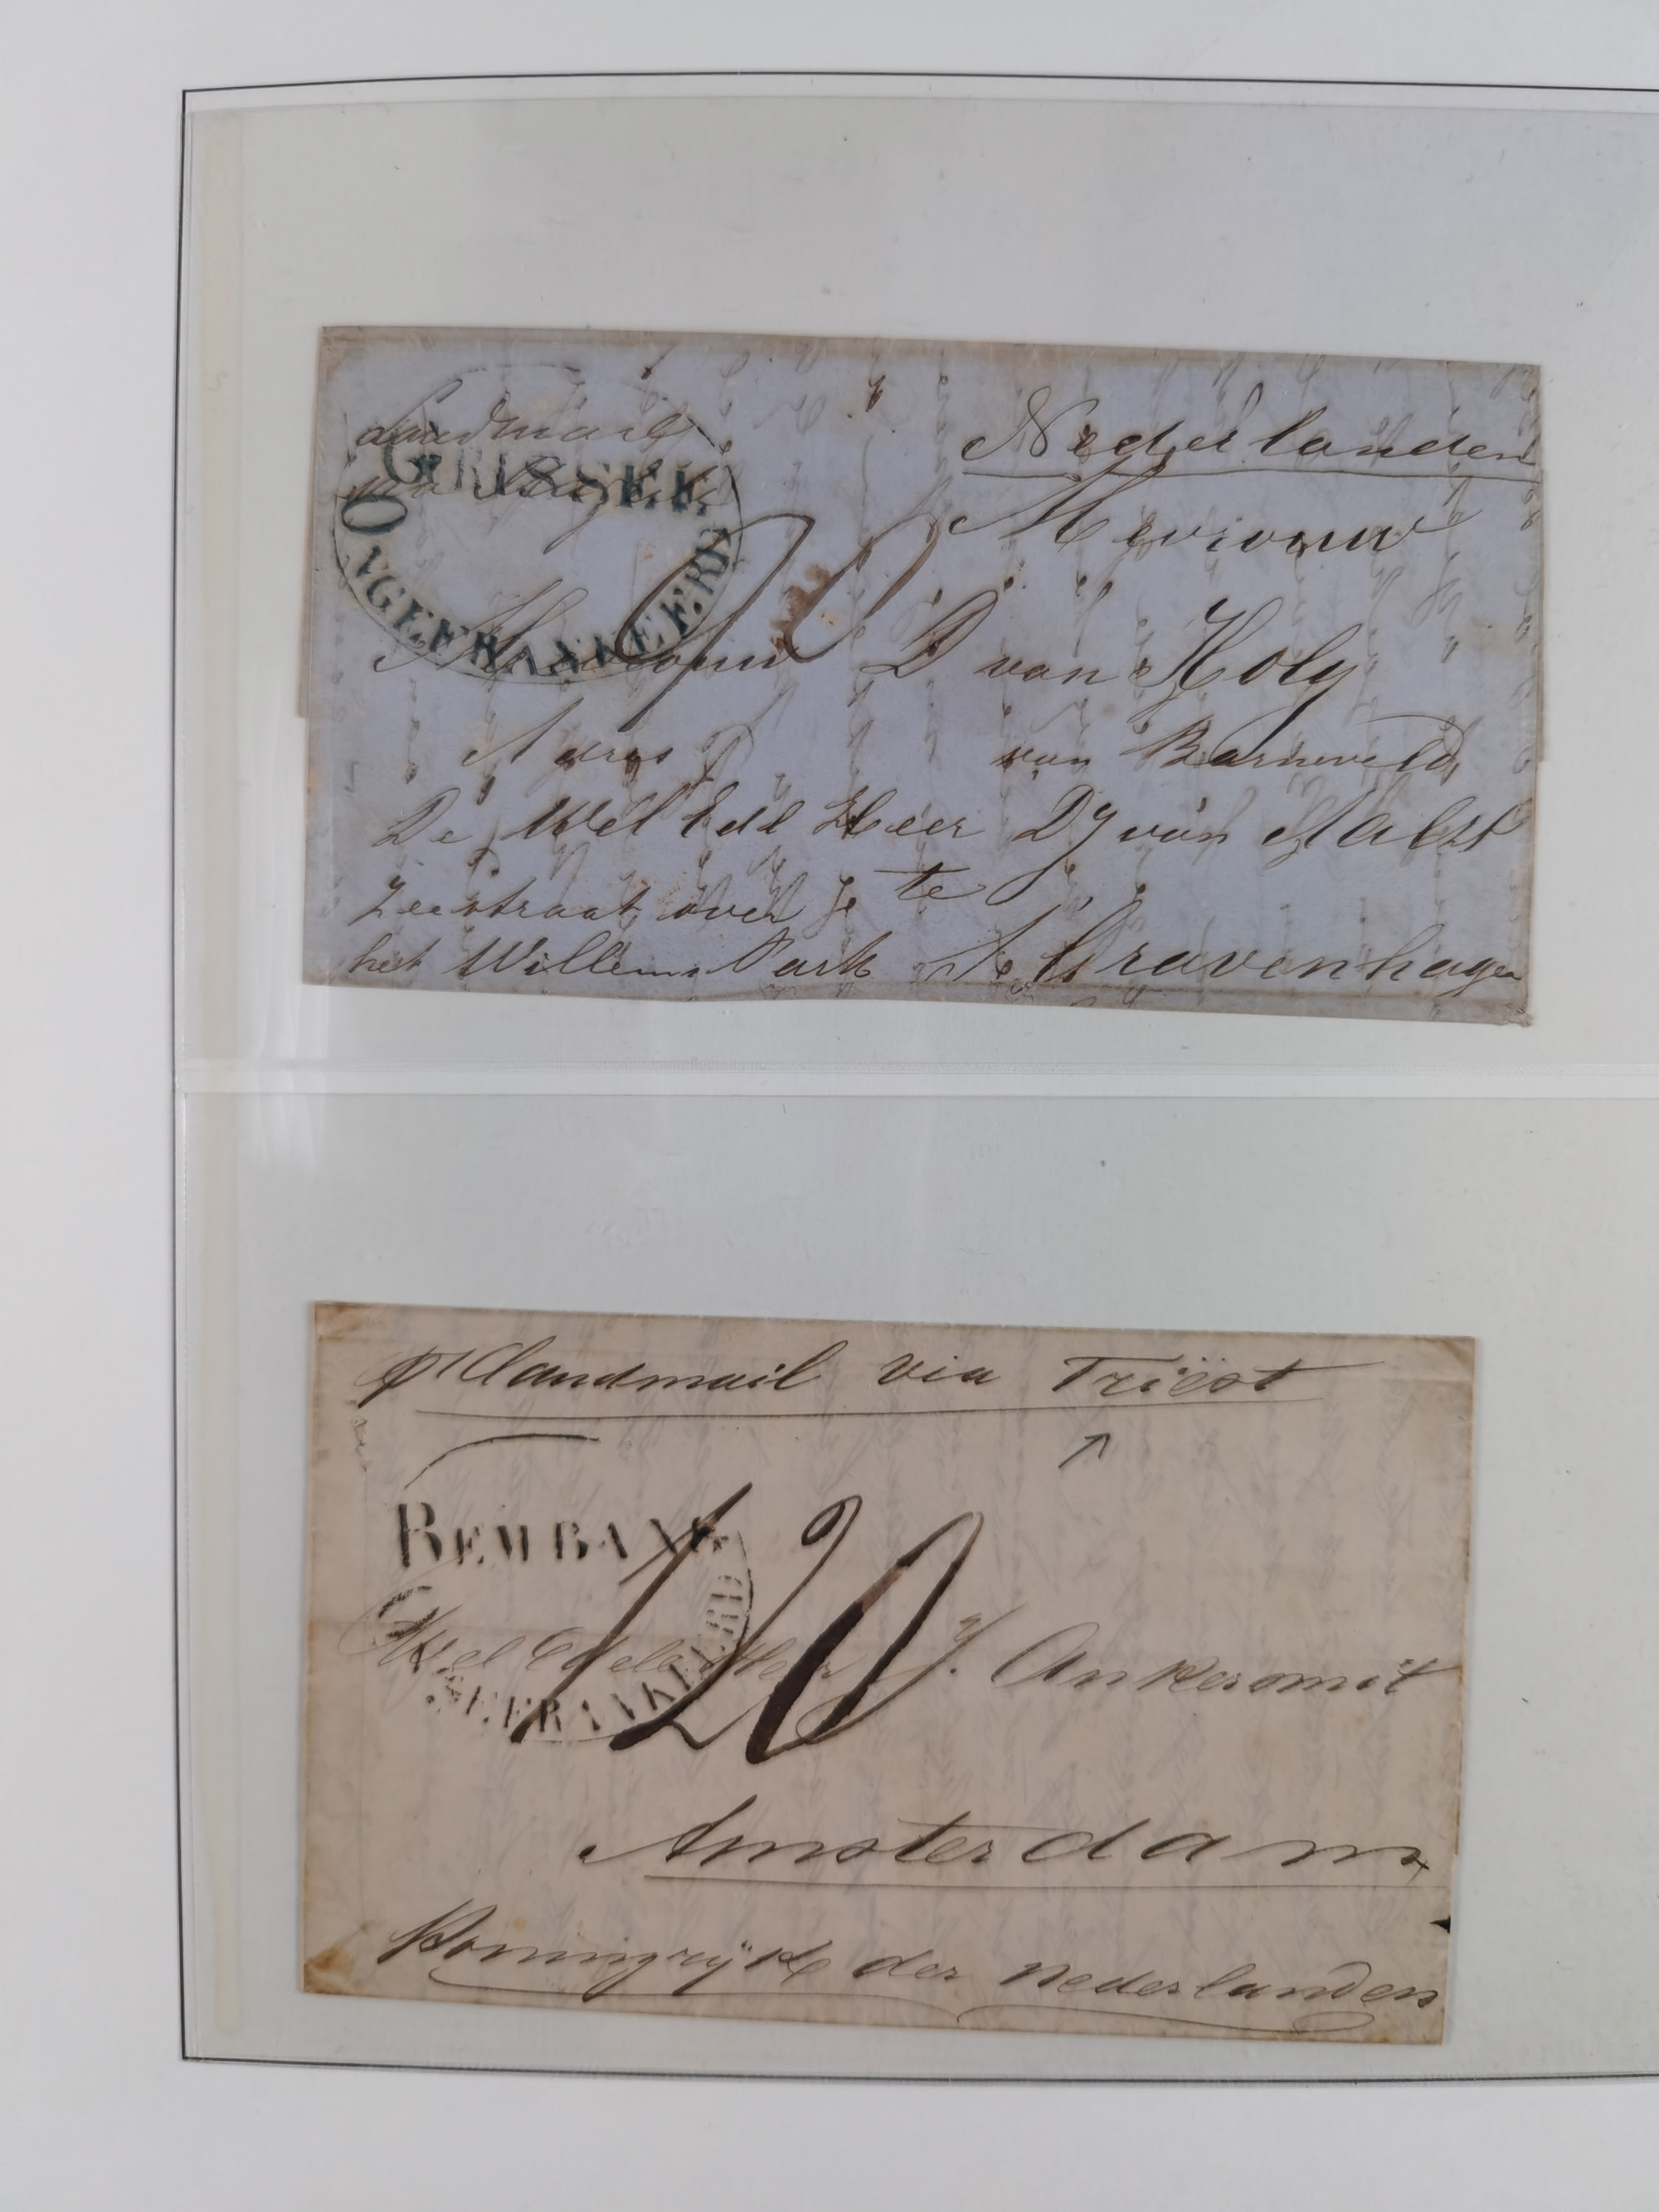 Landmail
GRISSEE
ONGEFRANKEERD
Nederlanden
Mevrouw
Mevrouw D van Holy
Adres van Barneveld,
De Wel Edel Heer DJ van
Zeestraat over te
het Willems Park s Gravenhagen
pr Landmail via Triëst
REMBANG
ONGEFRANKEERD
120
Wel Edele Heer J. Ankersmit
Amsterdam
Koningrijk der Nederlanden